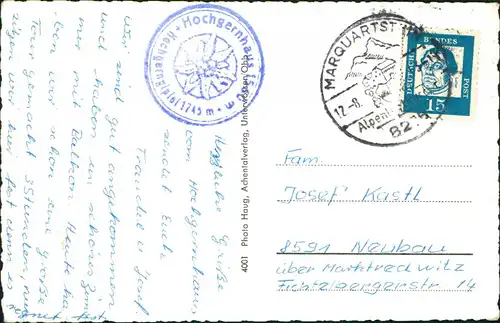 Wir sind gut angekommen
und haben ein schönes Zimmer
mit Balkon. Heute ha
ben wir schon eine große
Tour gemacht 3 Stunden
regnet
Herzliche Grüße
vom Hochgernhaus
sendet Euch
Traudl u. Josef.
Hochgernhaus
Hochgerngipfel 1745 m
4001 Photo Haug, Achentalverlag, Unterwössen/Obb.
MARQUARTST
17.-8.
Alpen
82
DEUTSCHE BUNDES POST
15
Fam.
Josef Kastl
8591 Neubau
über Marktredwitz
Fichtelbergerstr 14